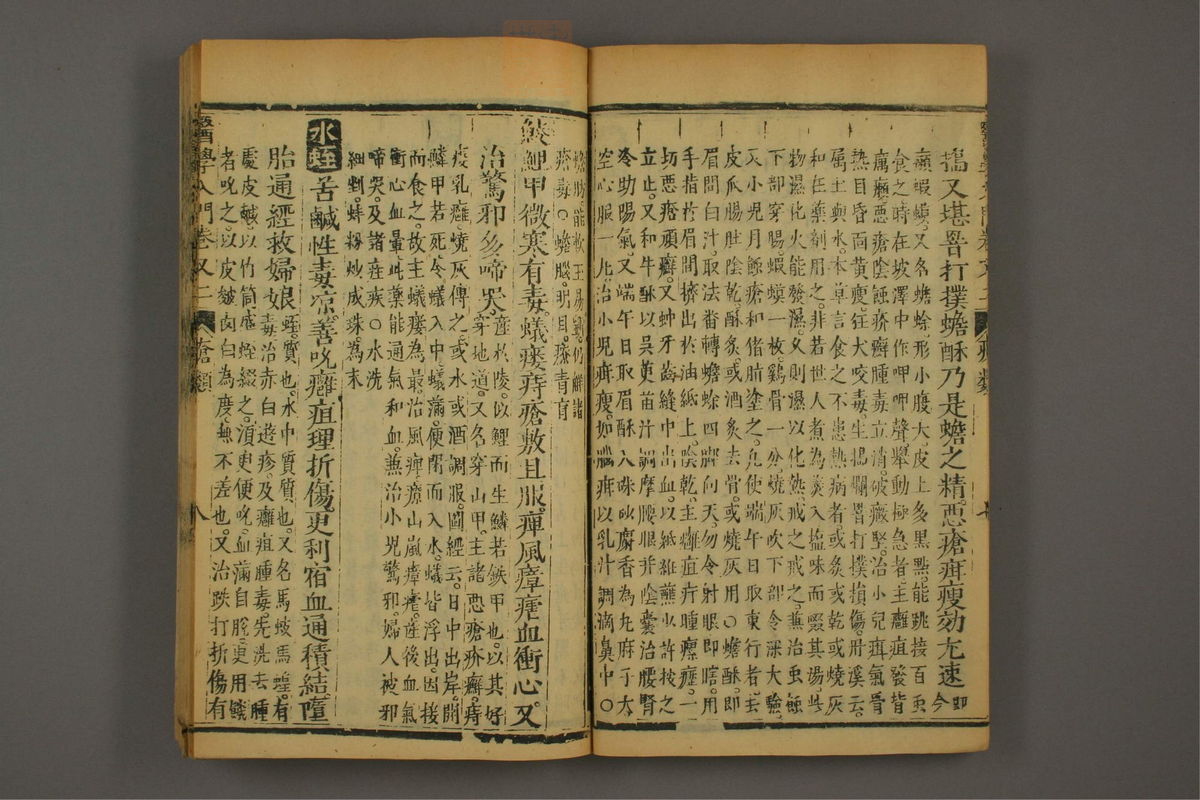 搗又堪醫打撲蟾酥乃是蟾之精惡瘡疳瘦効尤速即今
癩蝦蟆又名蟾蜍形小腹大皮上多黒點能跳接百虫
食之時在坡澤中作呷呷聲舉動極急者主癰疽發背
癘癩惡瘡陰蝕疥癬腫毒立消破癥堅治小兒疳氣骨
熱目昏面黃瘦狂犬咬毒生搗爛罯打撲損傷肝溪云
屬土與水本草言食之不患熱病者或炙或乾或燒灰
和在藥劑用之非若世人者為羮入塩味而啜其湯此
物濕化火能發濕久則濕以化熱戒之戒之兼治虫蝕
下部穿腸蝦蟆一枚雞骨一分燒灰吹下部令深大驗
又小兒月蝕瘡和猪脂塗之凡使端午日取東行者去
皮爪腸肚陰乾酥炙或酒炙去骨或燒灰用〇蟾酥即
眉間白汁取法畨轉蟾蜍四脚向天勿令射眼即瞎用
手指於眉間擠出於油紙上陰乾主癰疽疔腫瘰癧一
切惡瘡頑癬又蚛牙齒縫中出血以紙絍蘸少許按之
立止又和牛酥以吳茰苗汁調摩腰眼并陰囊治腰腎
冷助陽氣又端午日取眉酥入硃砂麝香為丸麻子大
空心服一丸治小兒疳瘦如腦疳以乳汁調滴鼻中〇
蟾肪能軟玉易斷仍觧諸
瘡毒〇蟾腦明目療青盲
鯪鯉甲微寒有毒蟻瘻痔瘡敷且服痺風瘴瘧血衝心又
治驚邪多啼哭産於陵以鯉而生鱗若鉄甲也以其好
穿地道又名穿山甲主諸惡瘡疥癬痔
痿乳癰燒灰傅之或水或酒調服圖經云日中出岸開
鱗甲若死令蟻入中蟻滿便閉而入水蟻皆浮出因接
而食之故主蟻瘻為最治風痺瘴山嵐瘴瘧産後血氣
衝心血暈此藥能通氣和血兼治小兒驚邪婦人被邪
啼哭及諸疰疾〇水洗
細剉蚌粉炒成珠為末
水蛭苦鹹性毒凉善吮癰疽理折傷更利宿血通積結墮
胎通經救婦娘蛭質也水中質質也又名馬蛟馬蝗有
毒治赤白遊疹及癰疽腫毒先洗去腫
處皮鹹以竹筒盛蛭綴之湏更便吮血滿自脫更用饑
者吮之以皮皺肉白為度無不差也又治跌打折傷有
醫學入門卷又二 瘡類 八